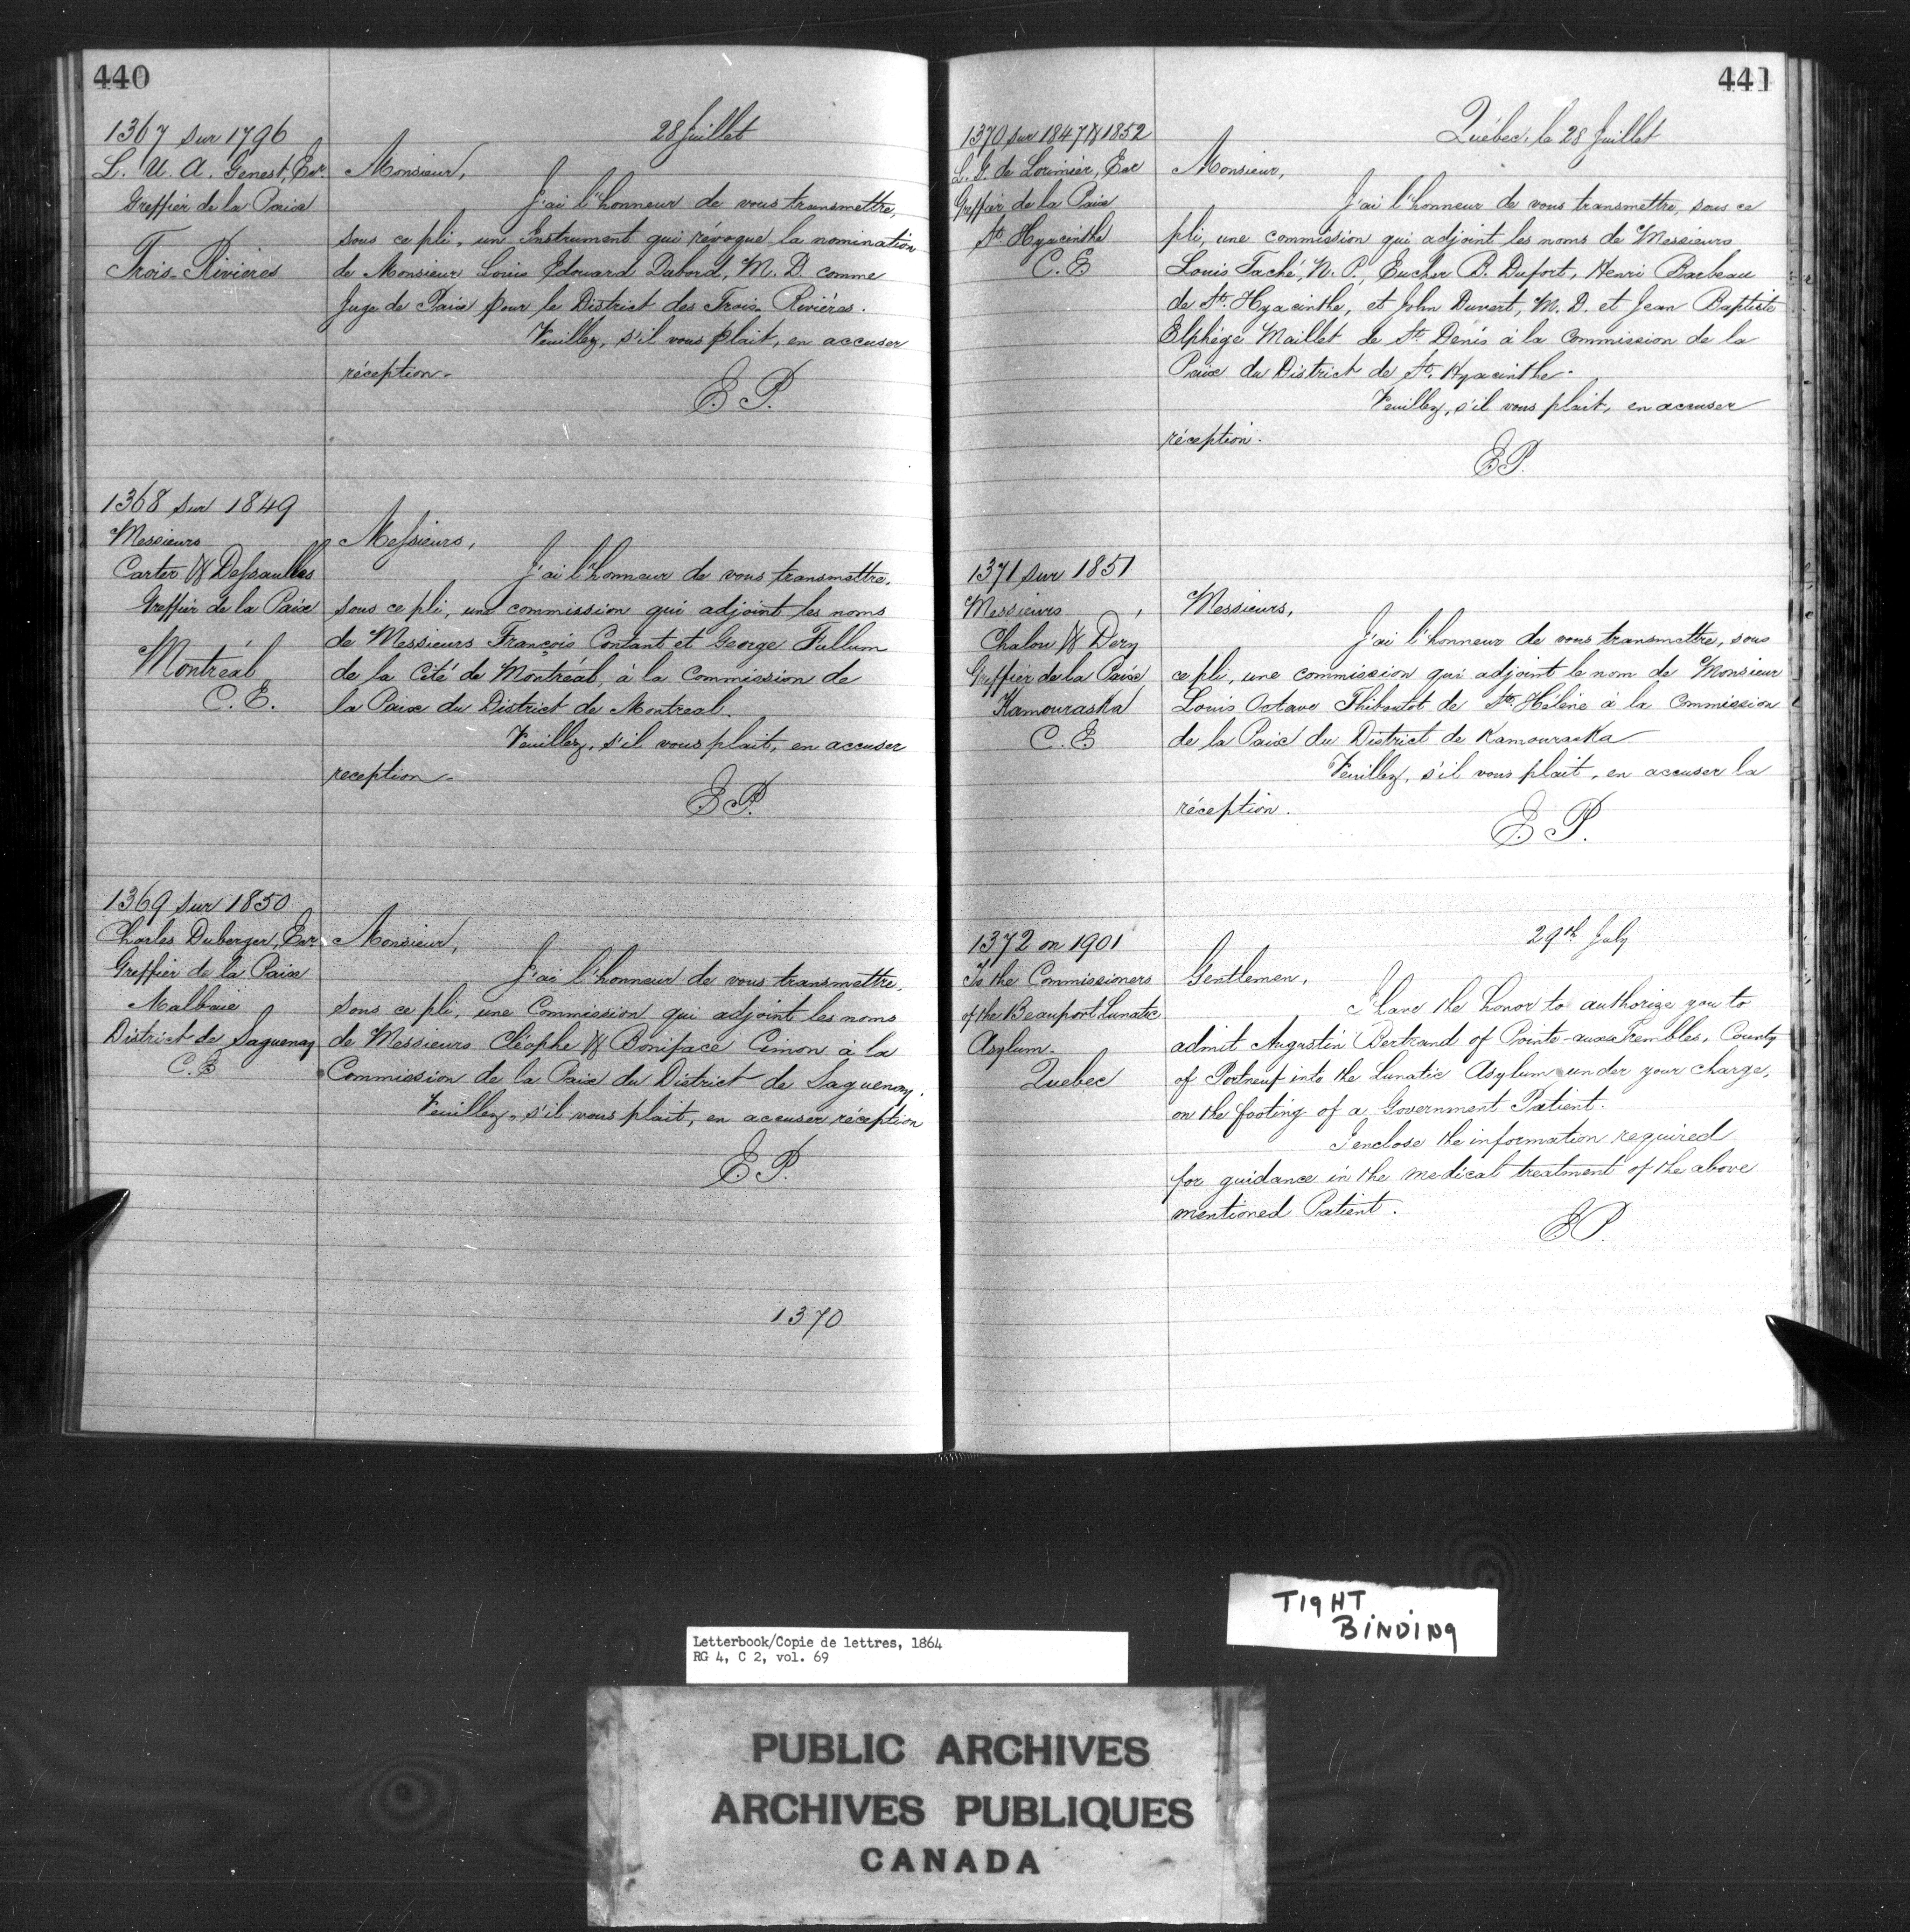 440
1367 sur 1796
28 Juillet
L. U. A. Genest, Esr
Greffier de la Paix
Trois-Rivieres
Monsieur,
J'ai l'honneur de vous transmettre,
sous ce pli, un Instrument qui révoque la nomination
de Monsieur Louis Edouard Dabord, M. D. comme
Juge de Paix pour le District des Trois-Riviéres.
Veuillez, s'il vous plait, en accuser
réception.
E. P.
1368 sur 1849
Messieurs
Carter & Dessaulles
Greffier de la Paix
Montréal
C. E.
Messieurs,
J'ai l'honneur de vous transmettre,
sous ce pli, une commission qui adjoint les noms
de Messieurs François Contant et George Fullum
de la Cité de Montréal, à la Commission de
la Paix du District de Montreal.
Veuillez, s'il vous plait, en accuser
reception.
E. P.
1369 sur 1850
Charles Duberger, Esr.
Greffier de la Paix
Malbaie
District de Saguenay
C. E
Monsieur,
J'ai l'honneur de vous transmettre,
sous ce pli, une Commission qui adjoint les noms
de Messieurs Cléophe & Boniface Cimon à la
Commission de la Paix du District de Saguenay.
Veuillez, s'il vous plait, en accuser réception
E. P.
1370
441
1370 sur 1847 & 1852
Québec, le 28 Juillet
L. G. de Lorimier, Esr
Greffier de la Paix
St. Hyacinthe
C. E
Monsieur,
J'ai l'honneur de vous transmettre, sous ce
pli, une commission qui adjoint les noms de Messieurs
Louis Taché, N. P., Eucher B. Dufort, Henri Barbeau
de St. Hyacinthe, et John Duvert, M. D. et Jean Baptiste
Elphége Maillet de St. Dénis à la Commission de la
Paix du District de St. Hyacinthe.
Veuillez, s'il vous plait, en accuser
réception.
E. P.
1371 sur 1851
Messieurs
Chalou & Dery
Greffier de la Paix
Kamouraska
C. E
Messieurs,
J'ai l'honneur de vous transmettre, sous
ce pli, une commission qui adjoint le nom de Monsieur
Louis Octave Thiboutot de Ste. Hélène à la Commission
de la Paix du District de Kamouraska
Veuillez, s'il vous plait, en accuser la
réception.
E. P.
1372 on 1901
29th July
To the Commissioners
of the Beauport Lunatic
Asylum.
Quebec
Gentlemen,
I have the honor to authorize you to
admit Augustin Bertrand of Pointe-aux-Trembles, County
of Portneuf into the Lunatic Asylum under your charge,
on the footing of a Government Patient.
I enclose the information required
for guidance in the medical treatment of the above
mentioned Patient.
E. P.
TIGHT
BINDING
Letterbook/Copie de lettres, 1864
RG 4, C 2, vol. 69
PUBLIC ARCHIVES
ARCHIVES PUBLIQUES
CANADA